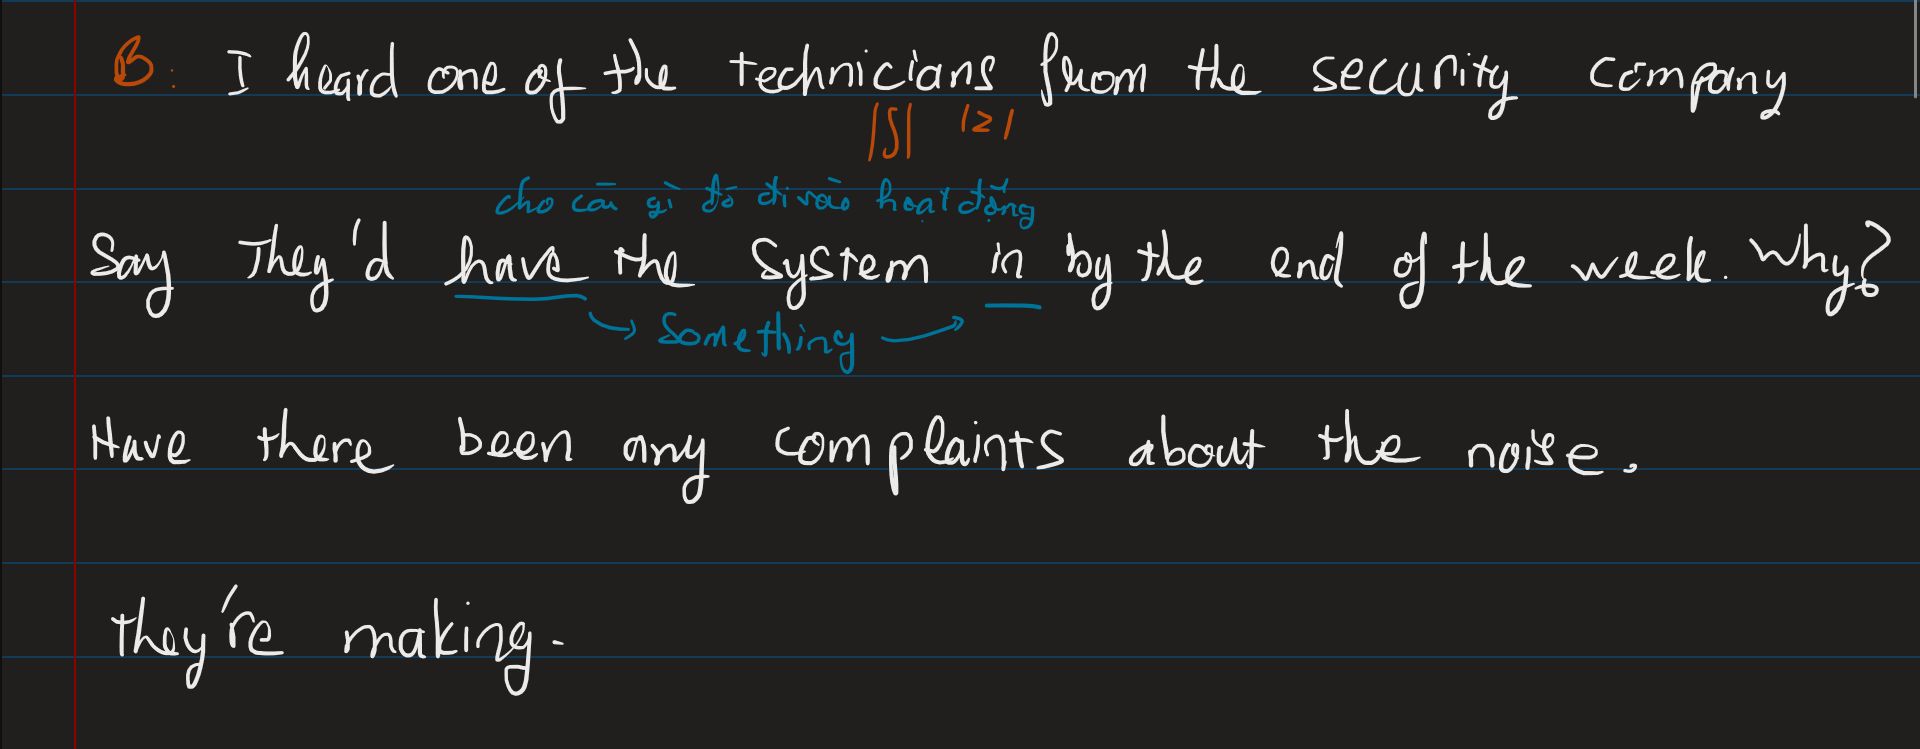 B: I heard one of the technicians from the security company
/ʃ/ /z/
cho cái gì đó đi vào hoạt động
Say They'd have the System in by the end of the week. Why?
Something
Have there been any complaints about the noise.
they're making.